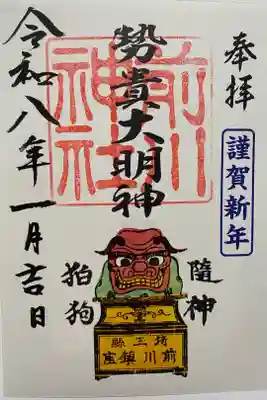 奉拝
謹賀新年
勢貴大明神
前川神社
隨神
狛狗
埼玉縣
前川鎮座
令和八年一月吉日